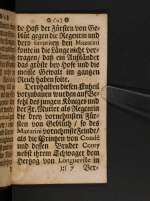 (5)
de Haß der Fürsten von Ge-
blüt gegen die Regentin und
dero Favoriten den Mazarini
könte in die Länge nicht ver-
tragen / daß ein Ausländer
das gröste bey Hofe und die
meiste Gewalt im gantzen
Reich haben solte.
Derohalben diesem Unheil
vorzubauen wurden auf Be-
fehl des jungen Königes und
der Fr. Mutter als Regentin
die drey vornehmsten Für-
sten von Geblüth / so des
Mazarini vornehmste Feinde /
als die Printzen von Condé
und dessen Bruder Conty
nebst ihrem Schwager dem
Hertzog von Longueville in
Ver-